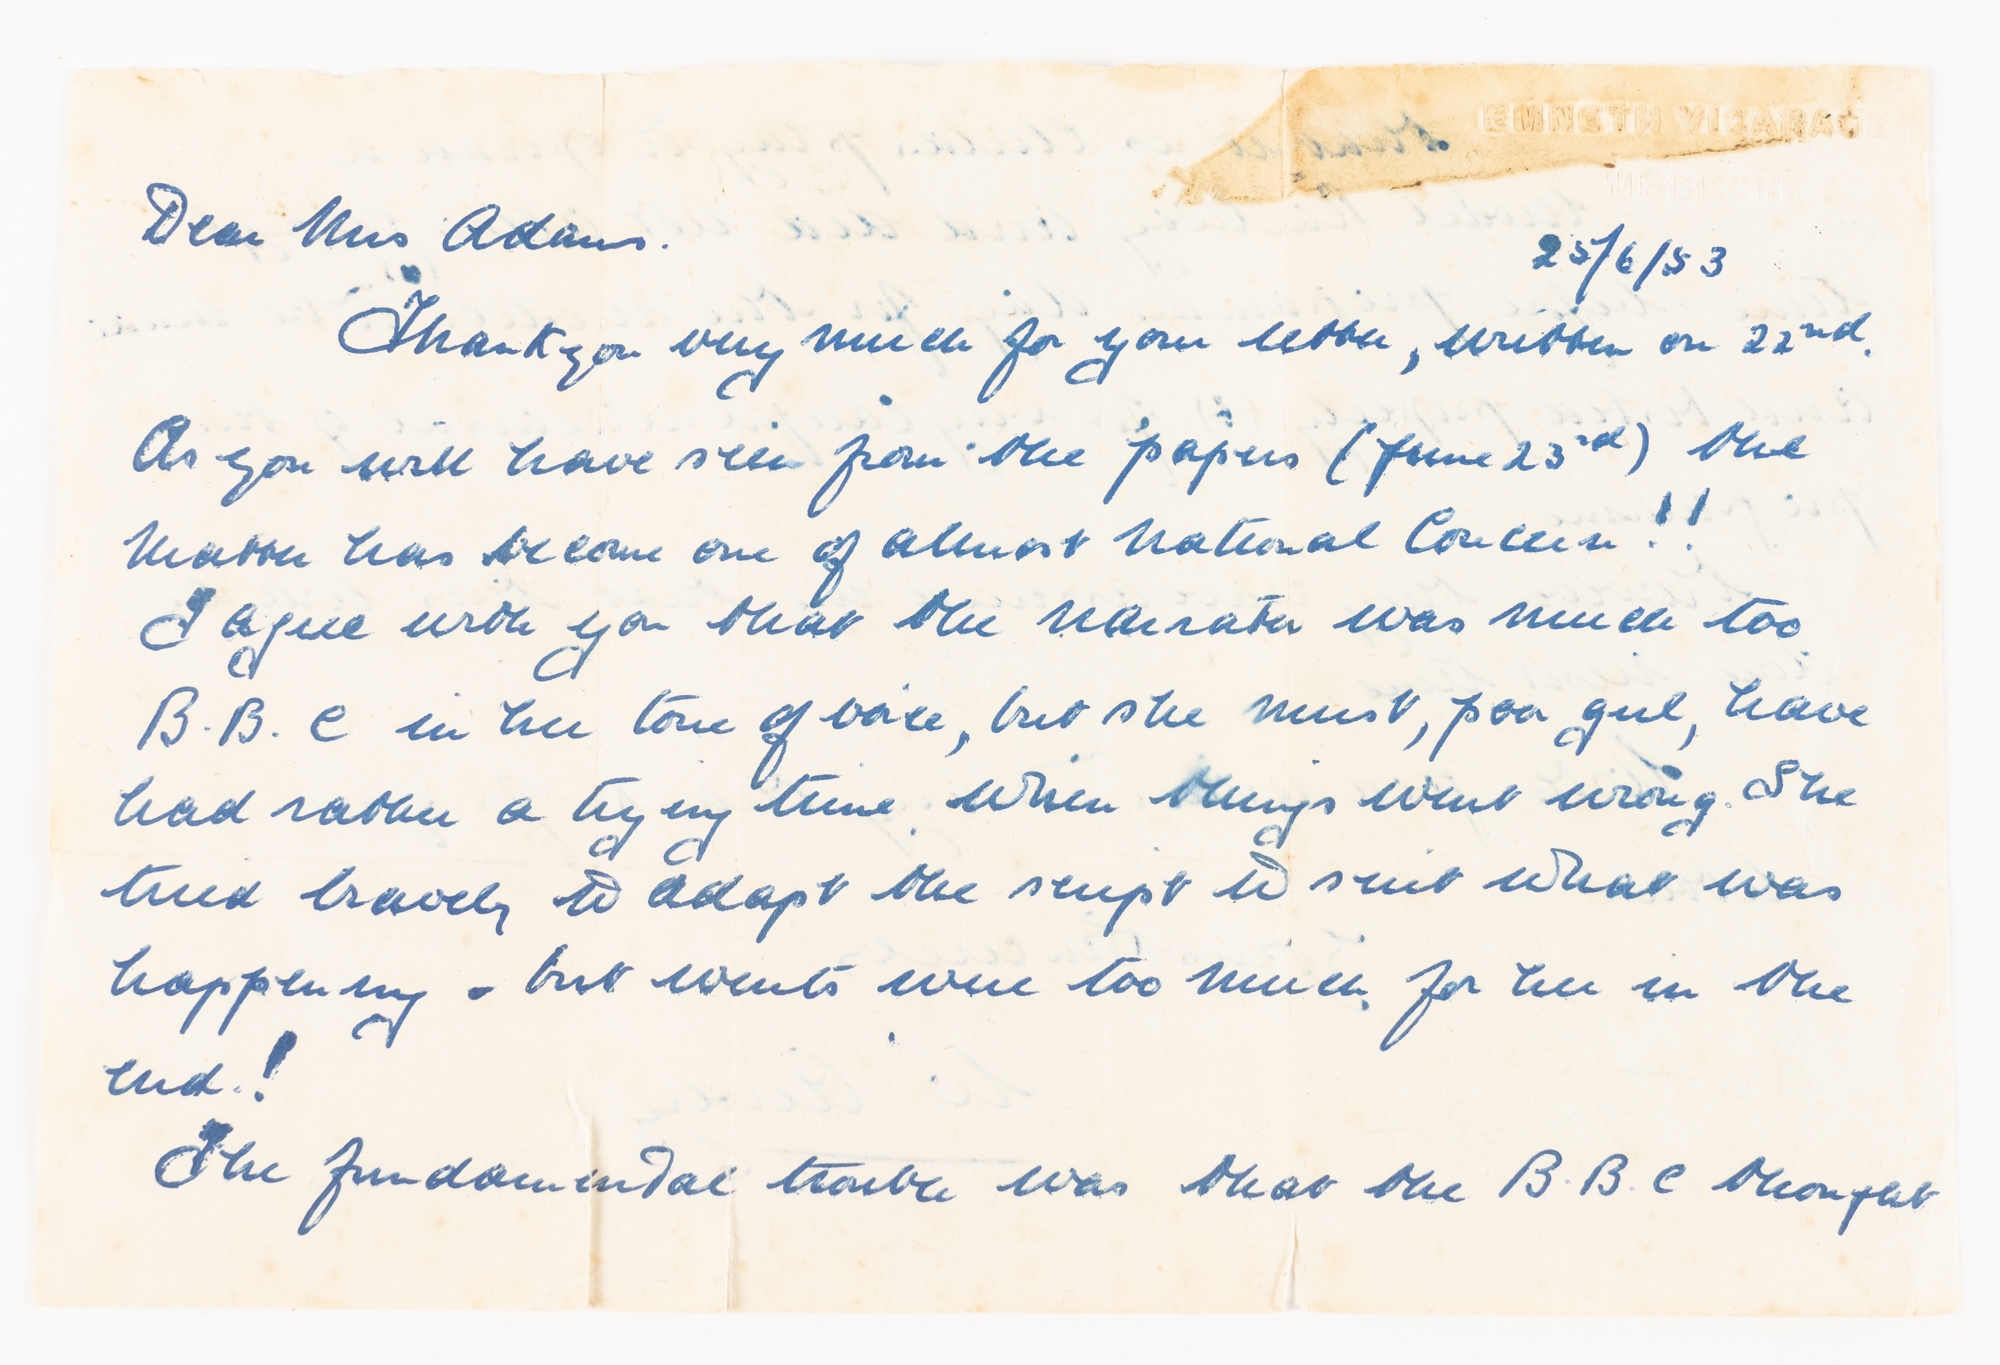 EMNETH VICARAGE
WISBECH
Dear Mrs Adams.
25/6/53
Thankyou very much for your letter, written on 22nd.
As you will have seen from the papers (June 23rd) the
matter has become one of almost national concern!!
I agree with you that the narrator was much too
B.B.C in her tone of voice, but she must, poor girl, have
had rather a trying time when things went wrong. She
tried bravely to adapt the script to suit what was
happening - but events were too much for her in the
end.!
The fundamental trouble was that the B.B.C thought